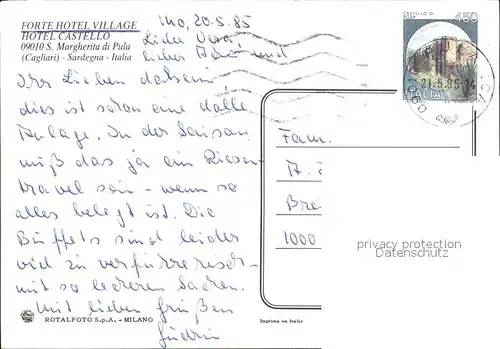 FORTE HOTEL VILLAGE
HOTEL CASTELLO
09010 S. Margherita di Pula
(Cagliari) - Sardegna - Italia
Mo, 20.5.85
Liebe Vera,
lieber und
Ihr Lieben daheim
dies ist schon eine dolle
Anlage. In der Saison
muß das ja ein Riesen-
travel sein - wenn so
alles belegt ist. Die
Büffets sind leider
viel zu verführerisch -
mit so leckeren Sachen.
Mit lieben Grüßen
CASTELLO DI
450
ITALIA
21.5.85
Fam.
A.
Bre
1000
privacy protection
Datenschutz
ROTALFOTO S.p.A. - MILANO
Imprimé en Italie